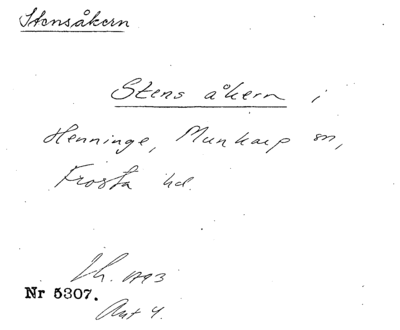 Stensåkern
Stens åkern i
Henninge, Munkarp sn,
Frosta hd.
Nr 5307.